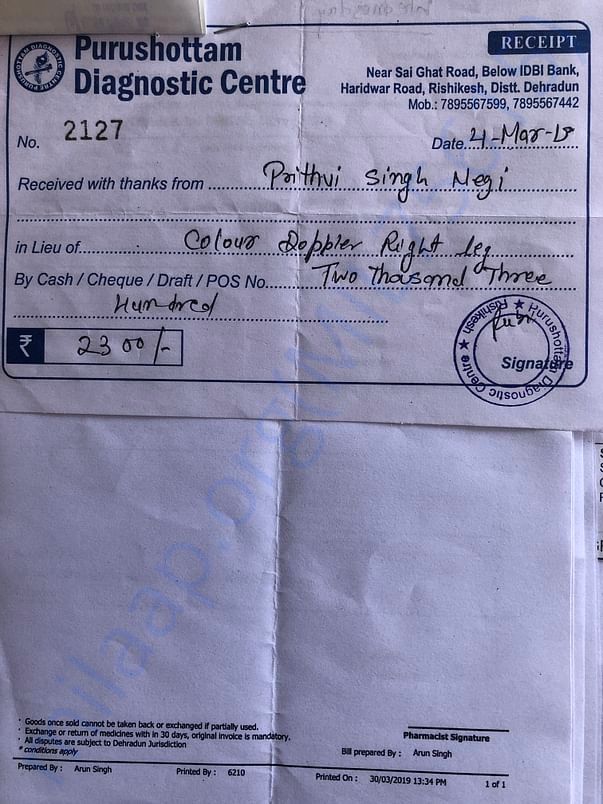 Purushottam
Diagnostic Centre
RECEIPT
Near Sai Ghat Road, Below IDBI Bank,
Haridwar Road, Rishikesh, Distt. Dehradun
Mob.: 7895567599, 7895567442
No. 2127
Date. 4-Mar-
Received with thanks from Prithvi Singh Negi
in Lieu of Colour Doppler Right leg
By Cash / Cheque / Draft / POS No. Two Thousand Three
Hundred
₹ 2300/-
Purushottam Diagnostic Centre ★ Rishikesh ★
Signature
* Goods once sold cannot be taken back or exchanged if partially used.
* Exchange or return of medicines with in 30 days, original invoice is mandatory.
* All disputes are subject to Dehradun Jurisdiction
* conditions apply
Pharmacist Signature
Bill prepared By : Arun Singh
Prepared By : Arun Singh
Printed By : 6210
Printed On : 30/03/2019 13:34 PM
1 of 1